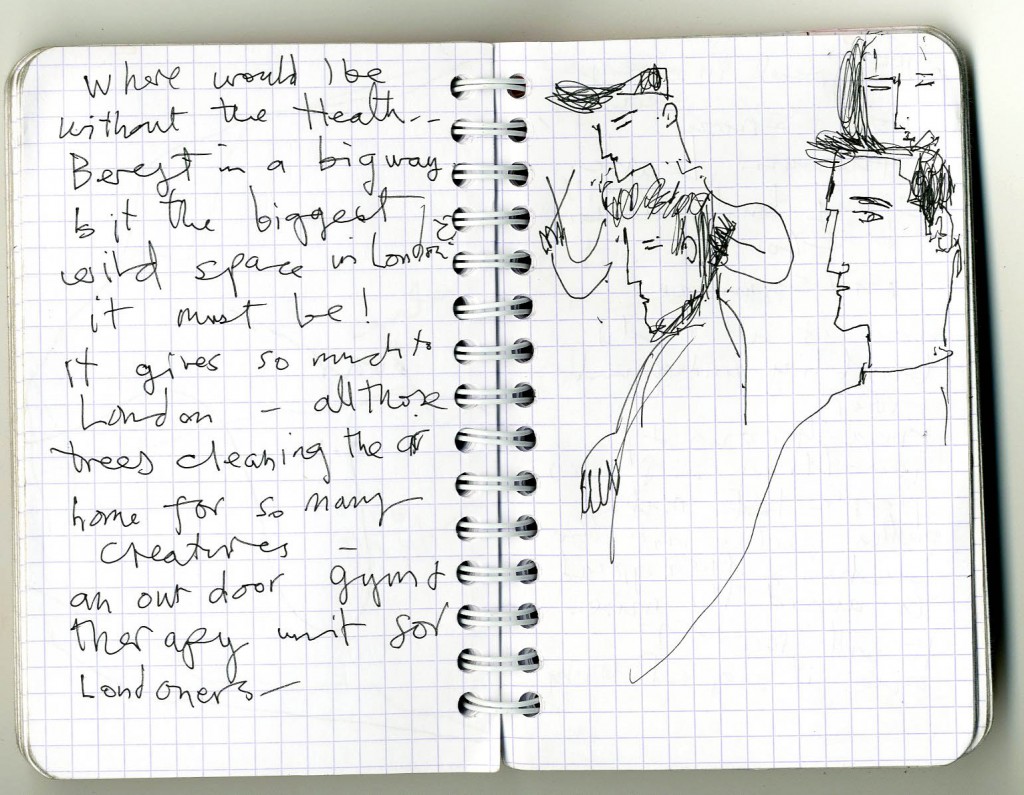 Where would I be
without the Heath --
Bereft in a big way
Is it the biggest
wild space in London?
it must be!
it gives so much to
London – all those
trees cleaning the air
home for so many
creatures –
an out door gym &
therapy unit for
Londoners –